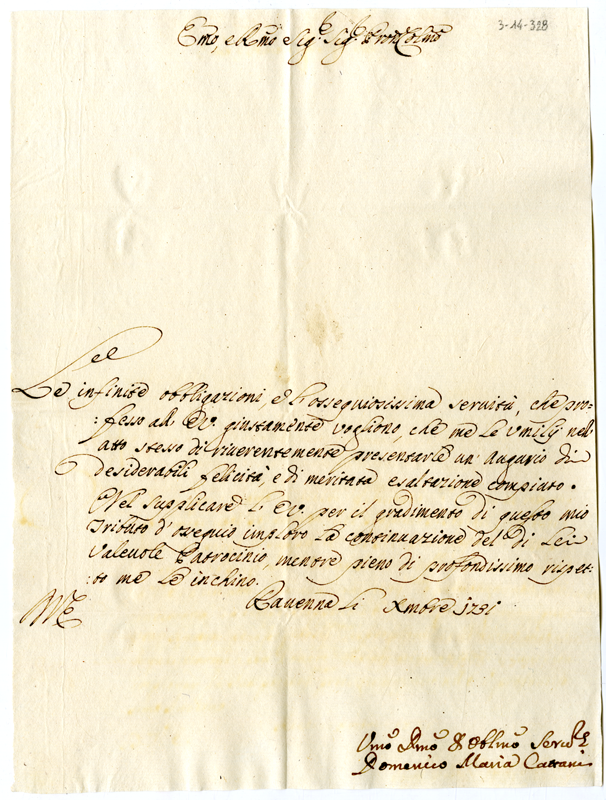 3-14-328
Emo, e Rmo Sigr. Sigr. Pron Colmo
Le infinite obbligazioni, e l'ossequiosissima servitù, che pro=
:fesso all' EV. giustamente vogliono, che me Le Umilj nell'
atto stesso di riverentemente presentarle un' Augurio di
desiderabili felicità e di meritata esaltazione compiuto.
Nel supplicare L' EV. per il gradimento di questo mio
Tributo d' ossequio imploro La continuazione del di Lei
Valevole Patrocinio, mentre pieno di profondissimo rispet:
:to me Le inchino.
Ravenna Li Xmbre 1731
Umo Dmo & Oblmo Servre
Domenico Maria Cattani